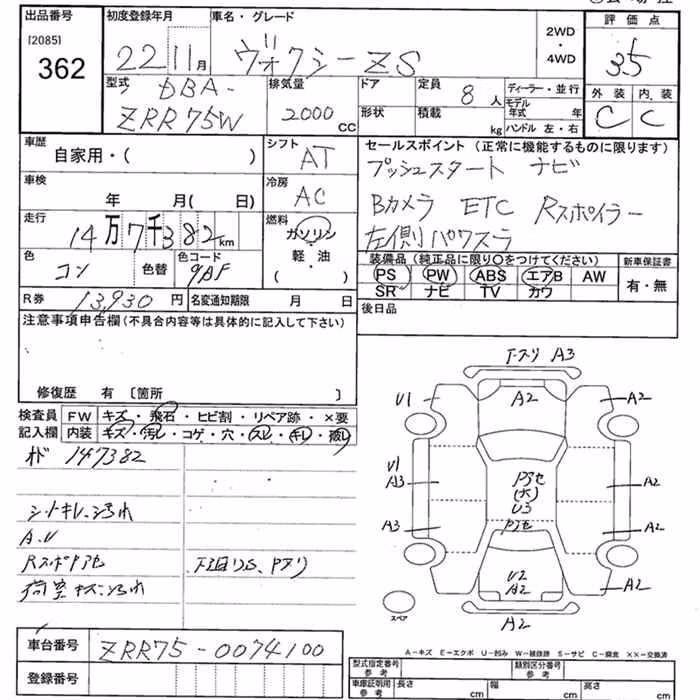 出品番号 初度登録年月 車名・グレード 2WD・4WD 評価点
[2085] 362 22 11月 ヴォクシーZS 3.5
型式 DBA-ZRR75W 排気量 2000 CC ドア 形状 定員 8人 積載 kg ディーラー・並行 モデル年式 年 ハンドル 左・右 外装 C 内装 C
車歴 自家用・( ) シフト AT セールスポイント (正常に機能するものに限ります)
プッシュスタート ナビ
車検 年 月( 日) 冷房 AC
Bカメラ ETC Rスポイラー
走行 14万7千382km 燃料 ガソリン・軽油 ( )
左側パワスラ
色 コン 色替 色コード 9AF
装備品 (純正品に限り○をつけてください) 新車保証書
PS PW ABS エアB AW 有・無
SR ナビ TV カワ
R券 13,930円 名変通知期限 月 日 後日品
注意事項申告欄(不具合内容等は具体的に記入して下さい)
修復歴 有 〔箇所 〕
検査員 FW キズ・飛石・ヒビ割・リペア跡・×要
記入欄 内装 キズ・汚レ・コゲ・穴・スレ・キレ・破レ
147382
シートキレ、汚れ
A.V
荷室キズ、汚れ
A3
U1 A2 A2
U1
A3 A2
U3
A3 A2
U2
A2 A2
スペア A2
A-キズ E-エクボ U-凹み W-補修跡 S-サビ C-腐食 ××-交換済
車台番号 ZRR75-0074100
型式指定番号 参考 類別区分番号 参考
登録番号
車庫証明用 参考 長さ cm 幅 cm 高さ cm